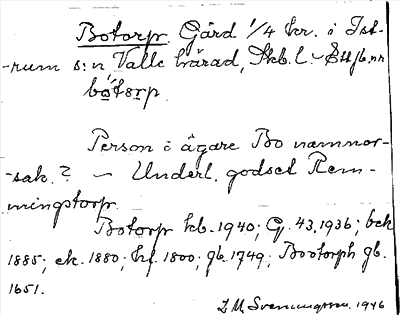 Botorp Gård 1/4 kr. i Ist-
-rum s:n Valle härad, Skb.l. - Sttjb.nr
bo̱tɛrp
Person o ägare Bo namnor-
-sak.? - Underl. godset Rem-
mingstorp
Botorp kb. 1940; G. 43. 1936; bek
1885; ek. 1880; hf. 1800; gb. 1749; Bootorph gb.
1651.
I. M. Svenungsson. 1946